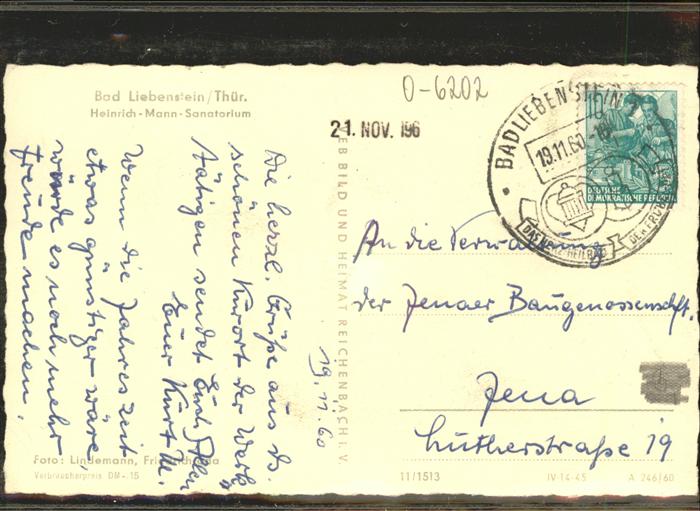 Bad Liebenstein/Thür.
Heinrich-Mann-Sanatorium
0-6202
21. NOV. 196
BAD LIEBENSTEIN
19.11.60
DAS HERZHEILBAD
10
DEUTSCHE
DEMOKRATISCHE REPUBLIK
Die herzl. Grüße aus ds.
schönen Kurort der Werk
tätigen sendet Euch Allen
Euer Kurt M.
Wenn die Jahreszeit
etwas günstiger wäre,
würde es noch mehr
Freude machen.
19.11.60
VEB BILD UND HEIMAT REICHENBACH i. V.
An die Verwaltung
der Jenaer Baugenossenschft.
Jena
Lutherstraße 19
Foto: Lindemann,
Verbraucherpreis DM -.15
11/1513
IV-14-45
A 246/60